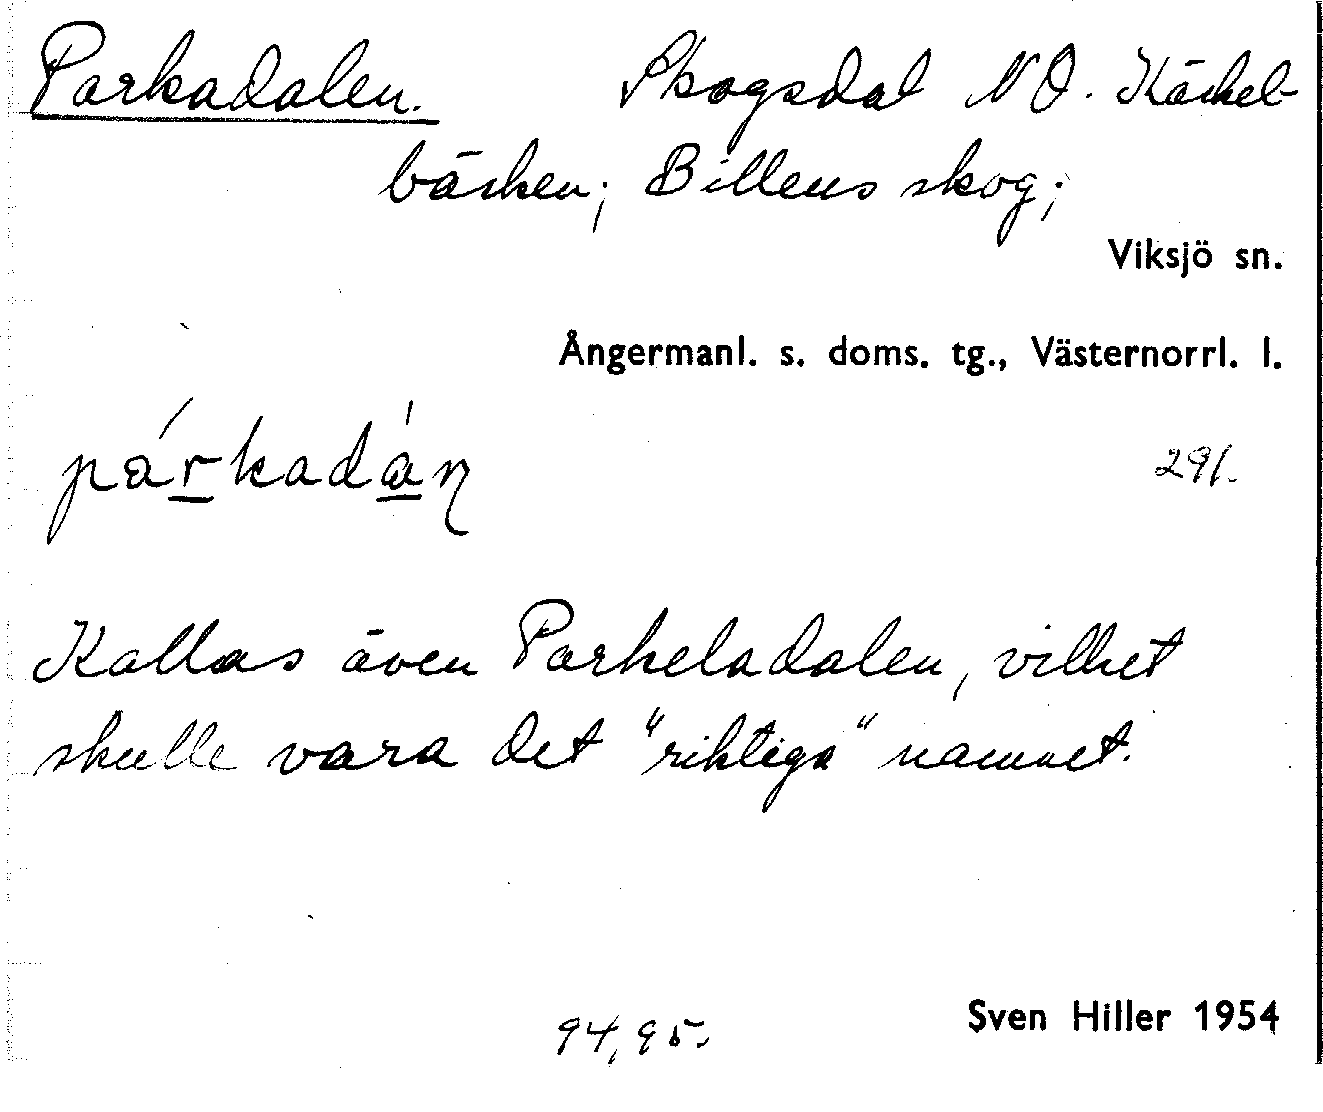 Parkadalen. Skogsdal NO. Käckel-
bäcken; Billens skog;
Viksjö sn.
Ångermanl. s. doms. tg., Västernorrl. l.
párkadán
291.
Kallas även Parkeladalen, vilket
skulle vara det "riktiga" namnet.
94,95.
Sven Hiller 1954